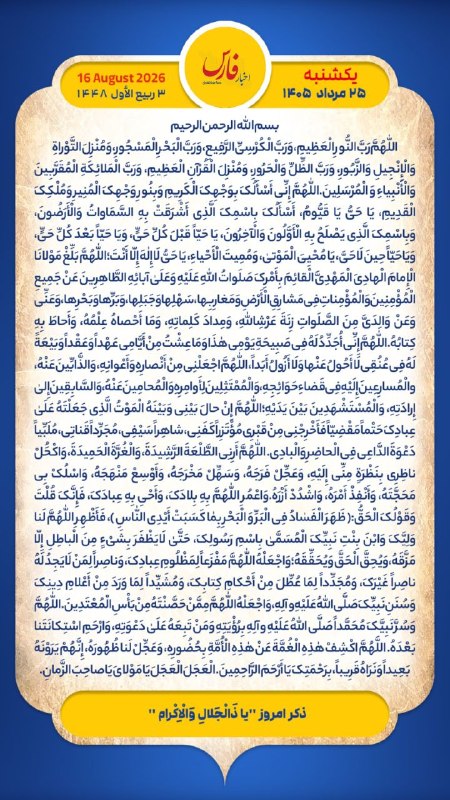 یکشنبه
۲۵ مرداد ۱۴۰۵
اخبار فارس
16 August 2026
۳ ربیع الأول ۱۴۴۸
بسم الله الرحمن الرحیم
اللّهُمَّ رَبَّ النُّورِ الْعَظِیمِ، وَرَبَّ الْكُرْسِيِّ الرَّفِیعِ، وَرَبَّ الْبَحْرِ الْمَسْجُورِ، وَمُنْزِلَ التَّوْراةِ
وَالْإِنْجِیلِ وَالزَّبُورِ، وَرَبَّ الظِّلِّ وَالْحَرُورِ، وَمُنْزِلَ الْقُرْآنِ الْعَظِیمِ، وَرَبَّ الْمَلائِكَةِ الْمُقَرَّبِینَ
وَالْأَنْبِیاءِ وَ الْمُرْسَلِینَ. اللّهُمَّ إِنِّی أَسْأَلُكَ بِوَجْهِكَ الْكَرِیمِ وَبِنُورِ وَجْهِكَ الْمُنِیرِ وَمُلْكِكَ
الْقَدِیمِ، یَا حَیُّ یَا قَیُّومُ، أَسْأَلُكَ بِاسْمِكَ الَّذِی أَشْرَقَتْ بِهِ السَّمَاوَاتُ وَالْأَرَضُونَ،
وَبِاسْمِكَ الَّذِی یَصْلَحُ بِهِ الْأَوَّلُونَ وَالْآخِرُونَ، یَا حَیّاً قَبْلَ كُلِّ حَیٍّ، وَیَا حَیّاً بَعْدَ كُلِّ حَیٍّ،
وَیَا حَیّاً حِینَ لَا حَیَّ، یَا مُحْیِیَ الْمَوْتیٰ، وَمُمِیتَ الْأَحْیاءِ، یَا حَیُّ لَا إِلهَ إِلّا أَنْتَ؛ اللّهُمَّ بَلِّغْ مَوْلانَا
الْإِمامَ الْهادِیَ الْمَهْدِیَّ الْقائِمَ بِأَمْرِكَ صَلَواتُ اللّهِ عَلَیْهِ وَعَلیٰ آبائِهِ الطَّاهِرِینَ عَنْ جَمِیعِ
الْمُؤْمِنِینَ وَالْمُؤْمِناتِ فِی مَشارِقِ الْأَرْضِ وَمَغارِبِها، سَهْلِها وَجَبَلِها، وَبَرِّها وَبَحْرِها، وَعَنِّی
وَعَنْ وَالِدَیَّ مِنَ الصَّلَواتِ زِنَةَ عَرْشِ اللّهِ، وَمِدادَ كَلِماتِهِ، وَمَا أَحْصاهُ عِلْمُهُ، وَأَحاطَ بِهِ
كِتابُهُ. اللّهُمَّ إِنِّی أُجَدِّدُ لَهُ فِی صَبِیحَةِ یَوْمِی هٰذَا وَمَا عِشْتُ مِنْ أَیَّامِی عَهْداً وَعَقْداً وَبَیْعَةً
لَهُ فِی عُنُقِی لَا أَحُولُ عَنْها وَلَا أَزُولُ أَبَداً، اللّهُمَّ اجْعَلْنِی مِنْ أَنْصارِهِ وَأَعْوانِهِ، وَالذَّابِّینَ عَنْهُ،
وَالْمُسارِعِینَ إِلَیْهِ فِی قَضاءِ حَوَائِجِهِ، وَالْمُمْتَثِلِینَ لِأَوامِرِهِ وَالْمُحامِینَ عَنْهُ، وَالسَّابِقِینَ إِلیٰ
إِرادَتِهِ، وَالْمُسْتَشْهَدِینَ بَیْنَ یَدَیْهِ؛ اللّهُمَّ إِنْ حالَ بَیْنِی وَبَیْنَهُ الْمَوْتُ الَّذِی جَعَلْتَهُ عَلَی
عِبادِكَ حَتْماً مَقْضِیّاً فَأَخْرِجْنِی مِنْ قَبْرِی مُؤْتَزِراً كَفَنِی، شاهِراً سَیْفِی، مُجَرِّداً قَناتِی، مُلَبِّیاً
دَعْوَةَ الدَّاعِی فِی الْحاضِرِ وَالْبادِی. اللّهُمَّ أَرِنِی الطَّلْعَةَ الرَّشِیدَةَ، وَالْغُرَّةَ الْحَمِیدَةَ، وَاكْحُلْ
ناظِرِی بِنَظْرَةٍ مِنِّی إِلَیْهِ، وَعَجِّلْ فَرَجَهُ، وَسَهِّلْ مَخْرَجَهُ، وَأَوْسِعْ مَنْهَجَهُ، وَاسْلُكْ بِی
مَحَجَّتَهُ، وَأَنْفِذْ أَمْرَهُ، وَاشْدُدْ أَزْرَهُ. وَاعْمُرِ اللّهُمَّ بِهِ بِلادَكَ، وَأَحْیِ بِهِ عِبادَكَ، فَإِنَّكَ قُلْتَ
وَقَوْلُكَ الْحَقُّ: ﴿ظَهَرَ الْفَسٰادُ فِی الْبَرِّ وَ الْبَحْرِ بِمٰا كَسَبَتْ أَیْدِی النّٰاسِ﴾، فَأَظْهِرِ اللّهُمَّ لَنا
وَلِیَّكَ وَابْنَ بِنْتِ نَبِیِّكَ الْمُسَمَّیٰ بِاسْمِ رَسُولِكَ، حَتَّیٰ لَا یَظْفَرَ بِشَیْءٍ مِنَ الْباطِلِ إِلّا
مَزَّقَهُ، وَیُحِقَّ الْحَقَّ وَیُحَقِّقَهُ؛ وَاجْعَلْهُ اللّهُمَّ مَفْزَعاً لِمَظْلُومِ عِبادِكَ، وَناصِراً لِمَنْ لَا یَجِدُ لَهُ
ناصِراً غَیْرَكَ، وَمُجَدِّداً لِمَا عُطِّلَ مِنْ أَحْكامِ كِتابِكَ، وَمُشَیِّداً لِمَا وَرَدَ مِنْ أَعْلامِ دِینِكَ
وَسُنَنِ نَبِیِّكَ صَلَّی اللّهُ عَلَیْهِ وَآلِهِ، وَاجْعَلْهُ اللّهُمَّ مِمَّنْ حَصَّنْتَهُ مِنْ بَأْسِ الْمُعْتَدِینَ. اللّهُمَّ
وَسُرَّ نَبِیَّكَ مُحَمَّداً صَلَّی اللّهُ عَلَیْهِ وَآلِهِ بِرُؤْیَتِهِ وَمَنْ تَبِعَهُ عَلَیٰ دَعْوَتِهِ، وَارْحَمِ اسْتِكانَتَنا
بَعْدَهُ. اللّهُمَّ اكْشِفْ هٰذِهِ الْغُمَّةَ عَنْ هٰذِهِ الْأُمَّةِ بِحُضُورِهِ، وَعَجِّلْ لَنا ظُهُورَهُ، إِنَّهُمْ یَرَوْنَهُ
بَعِیداً وَنَرَاهُ قَرِیباً، بِرَحْمَتِكَ یَا أَرْحَمَ الرَّاحِمِینَ. الْعَجَلَ الْعَجَلَ یَا مَوْلایَ یَا صاحِبَ الزَّمانِ.
ذکر امروز "یا ذَالْجَلالِ وَالْاِکْرام "